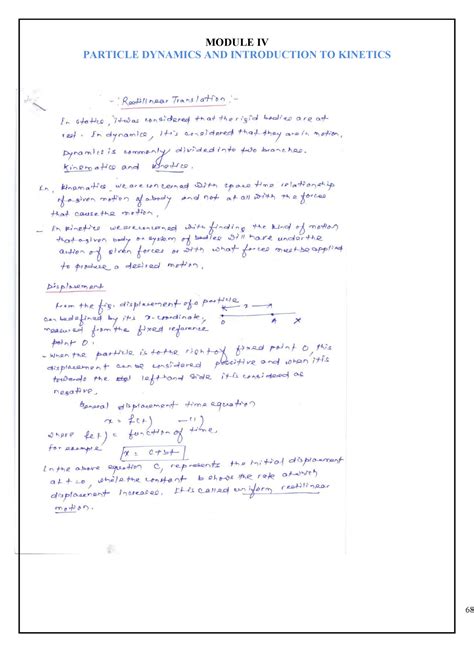 MODULE IV
PARTICLE DYNAMICS AND INTRODUCTION TO KINETICS
-: Rectilinear Translation :-
In statics, it was considered that the rigid bodies are at
rest. In dynamics, it is considered that they are in motion.
Dynamics is commonly divided into two branches.
Kinematics and kinetics.
- In kinematics, we are concerned with space time relationship
of a given motion of a body and not at all with the forces
that cause the motion.
- In kinetics we are concerned with finding the kind of motion
that a given body or system of bodies will have under the
action of given forces or with what forces must be applied
to produce a desired motion.
Displacement
from the fig. displacement of a particle
can be defined by its x-coordinate,
measured from the fixed reference
point O.
x
O A X
- When the particle is to the right of fixed point O, this
displacement can be considered positive and when it is
towards the left hand side it is considered as
negative.
General displacement time equation
x = f(t) — (1)
where f(t) = function of time,
for example
x = c + bt
In the above equation C, represents the initial displacement
at t = 0, while the constant b shows the rate at which
displacement increases. It is called uniform rectilinear
motion.
68